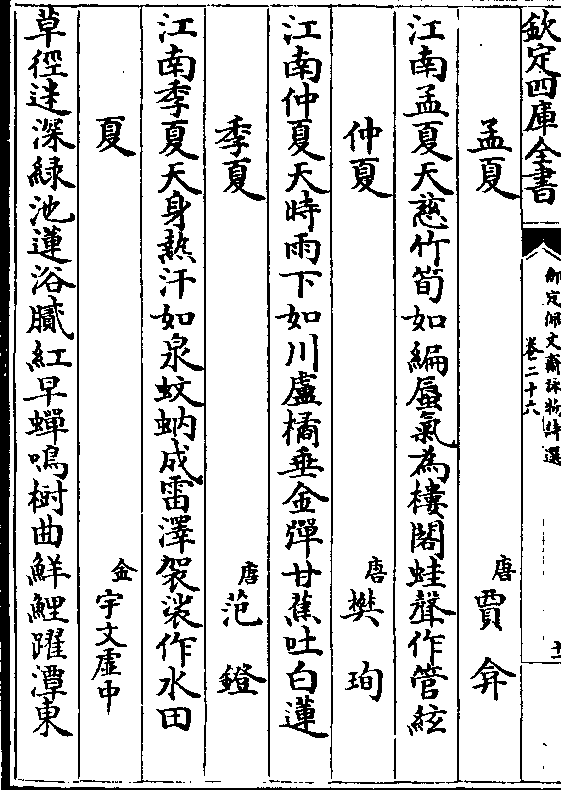 欽定四庫全書
御定佩文齋詠物詩選
卷二十六
孟夏
唐 賈弇
江南孟夏天慈竹筍如編蜃氣為樓閣蛙聲作管絃
仲夏
唐 樊珣
江南仲夏天時雨下如川盧橘垂金彈甘蕉吐白蓮
季夏
唐 范鐙
江南季夏天身熱汗如泉蚊蚋成雷澤袈裟作水田
夏
金 宇文虛中
草徑迷深綠池蓮浴膩紅早蟬鳴樹曲鮮鯉躍潭東